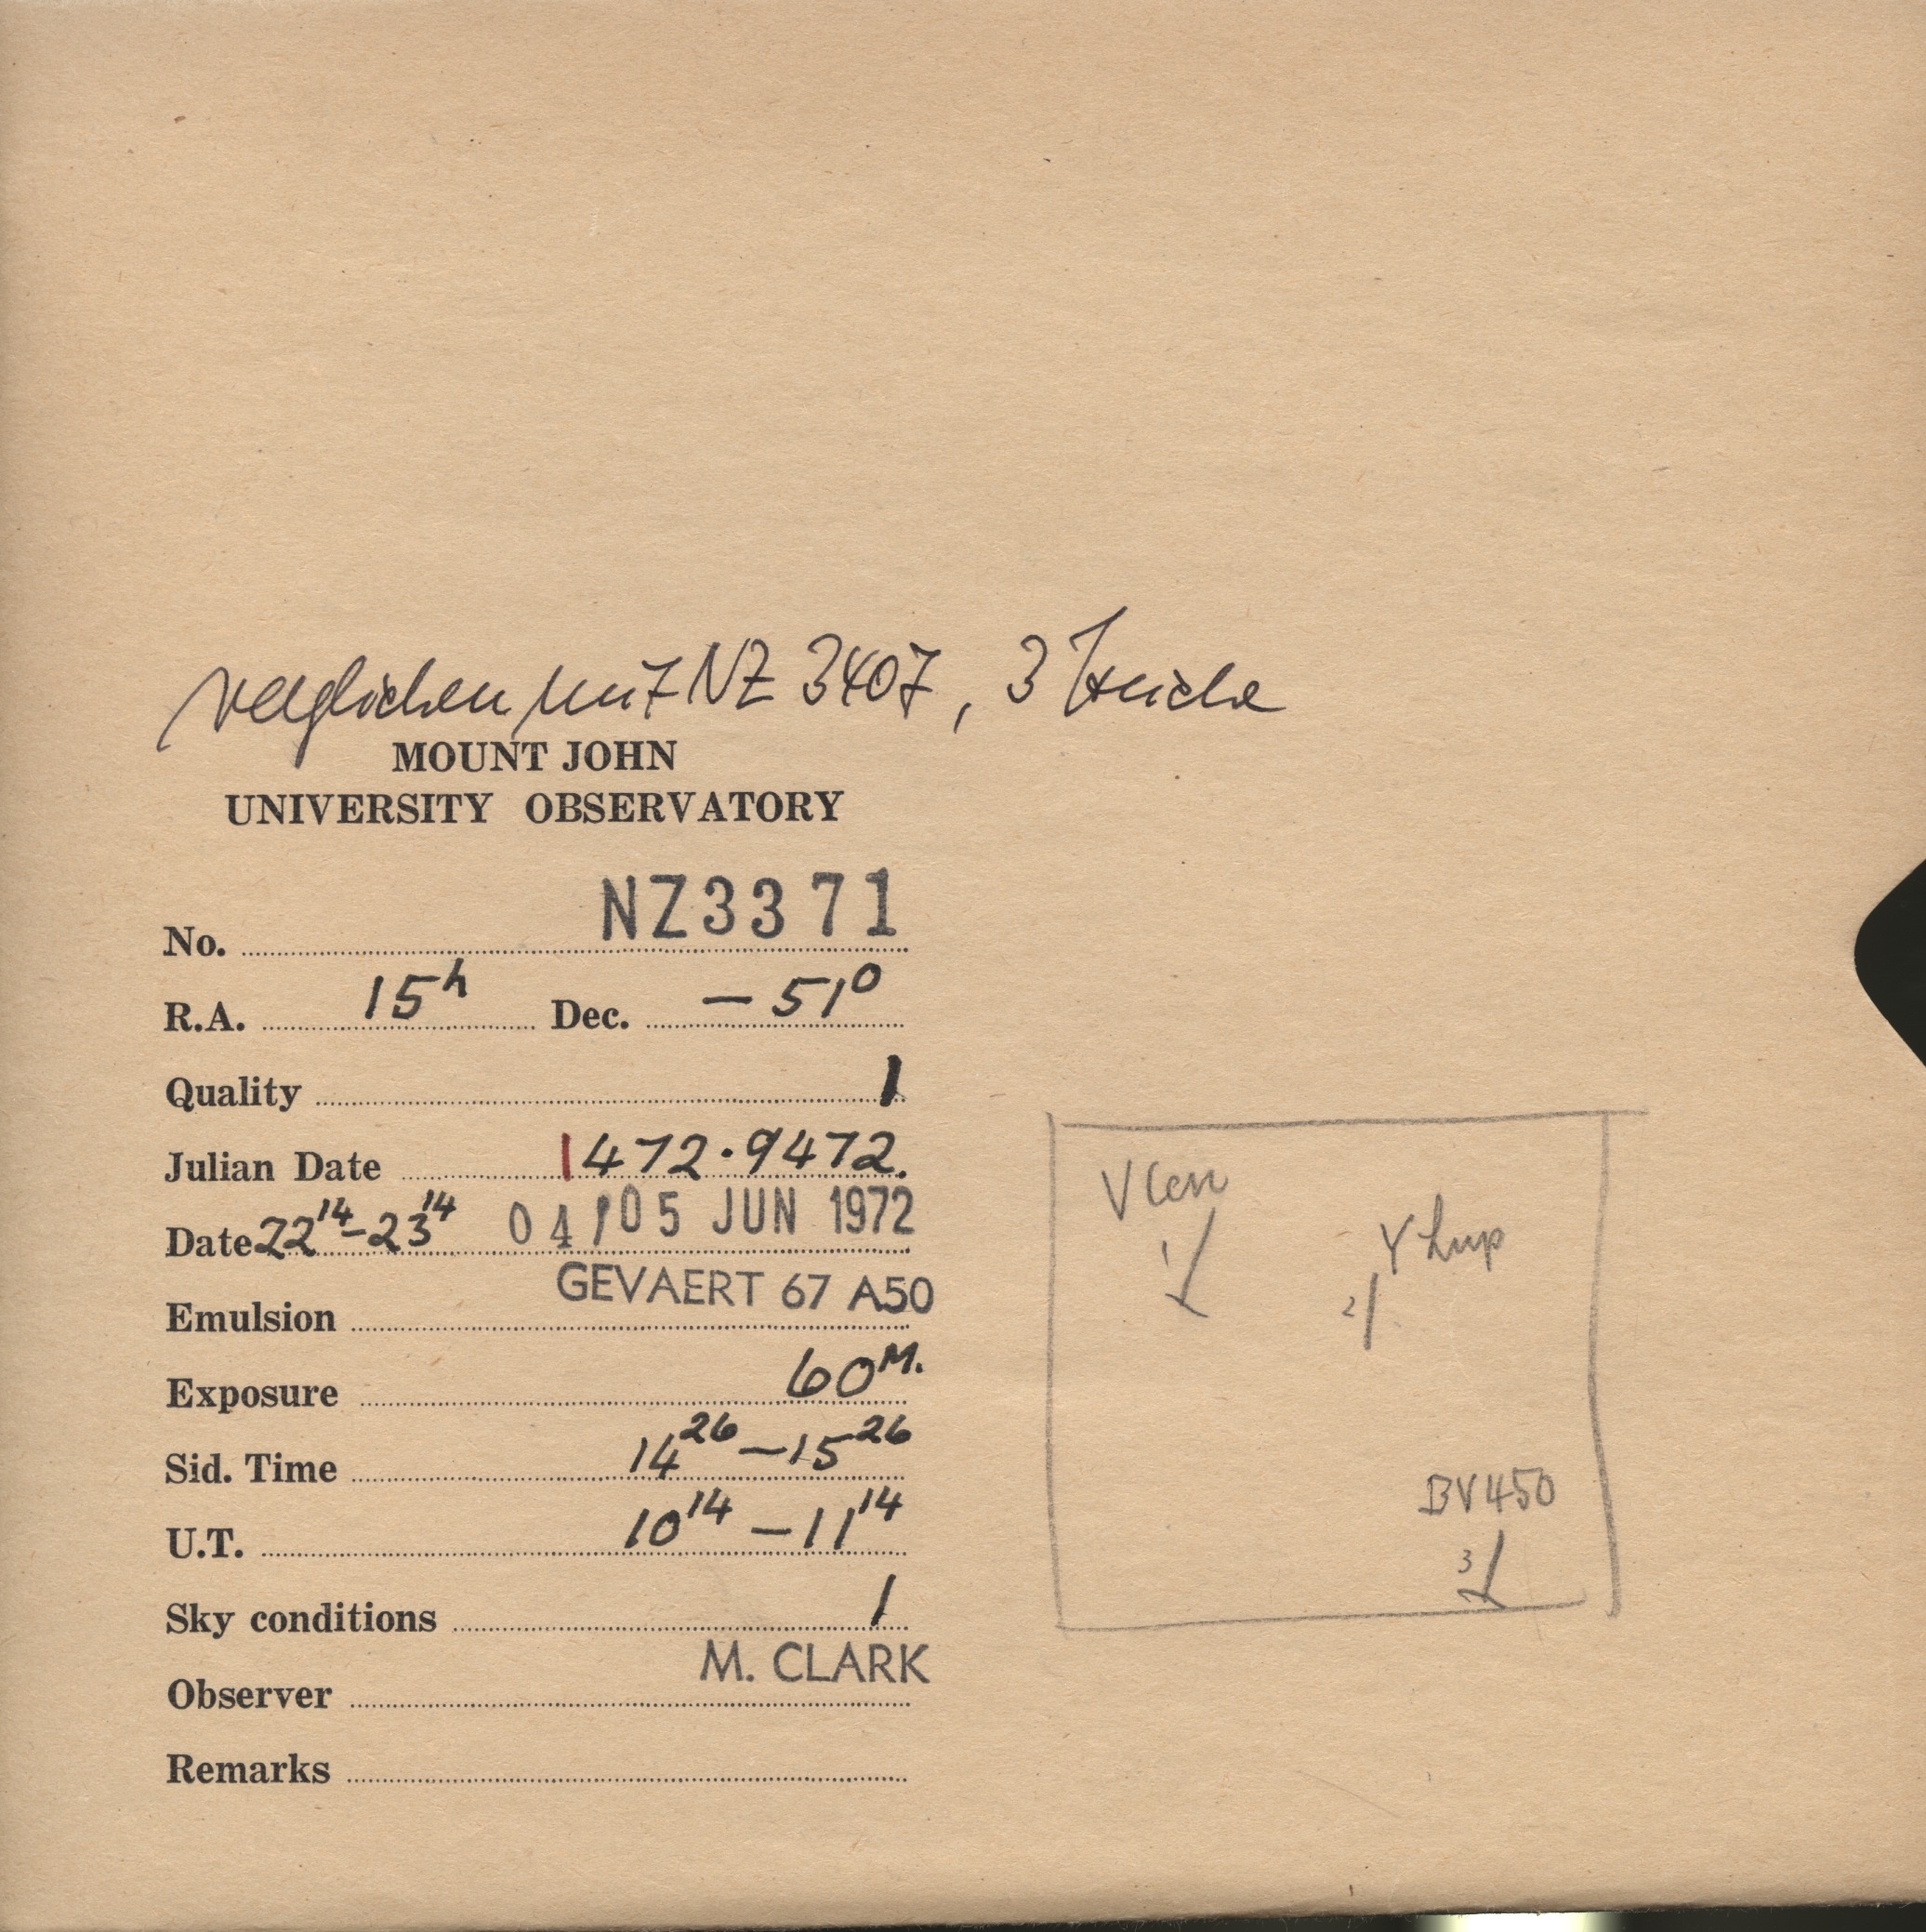 verglichen mit NZ 3407, 3 Striche
MOUNT JOHN
UNIVERSITY OBSERVATORY
No. NZ3371
R.A. 15h Dec. -51°
Quality 1
Julian Date 1472.9472.
Date 22 14 - 23 14 04/05 JUN 1972
Emulsion GEVAERT 67 A50
Exposure 60 M.
Sid. Time 14 26 - 15 26
U.T. 10 14 - 11 14
Sky conditions 1
Observer M. CLARK
Remarks
V Cen
1
Y Lup
2
BV450
3